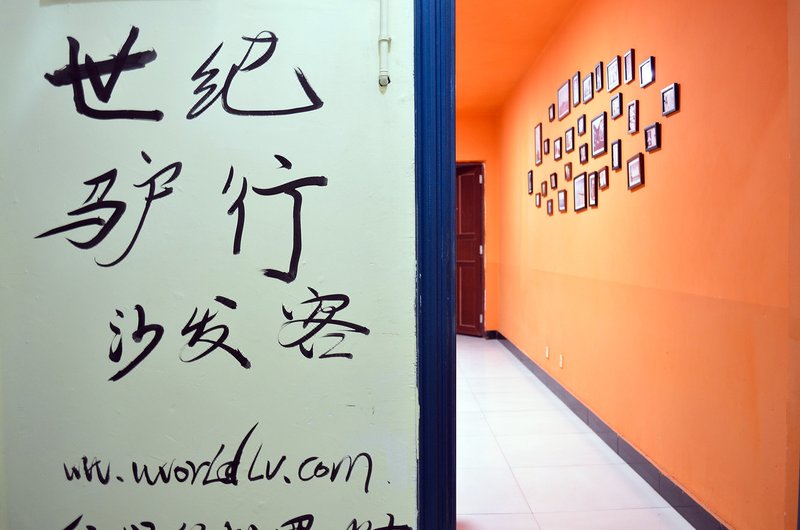 世纪
驴行
沙发客
www.worldlv.com